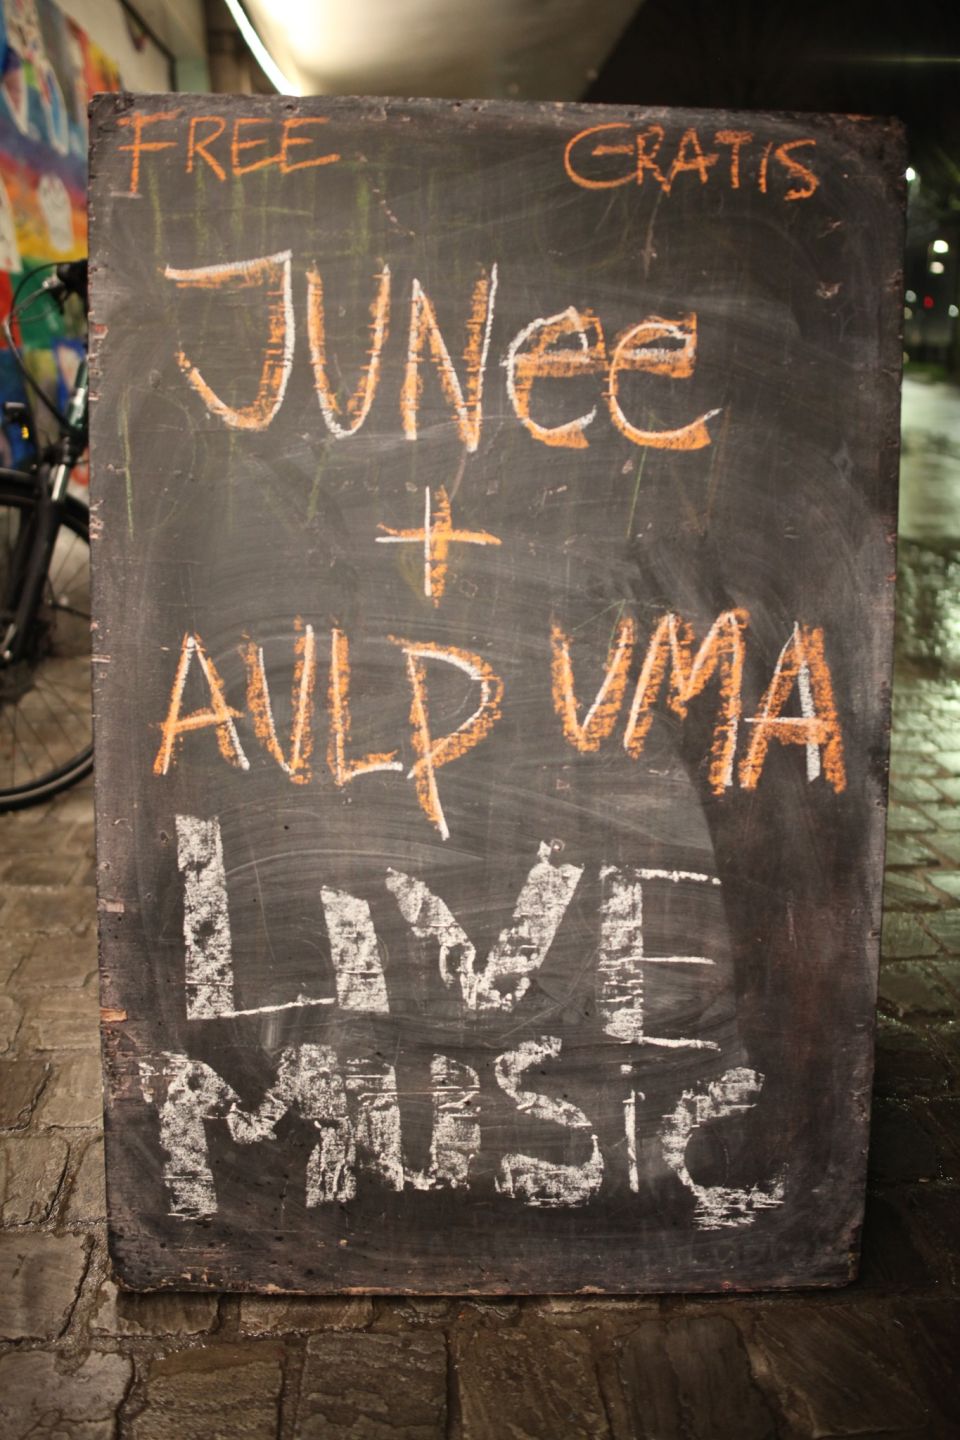 FREE GRATIS
JUNee
+
AULP UMA
LIVE
MUSIC